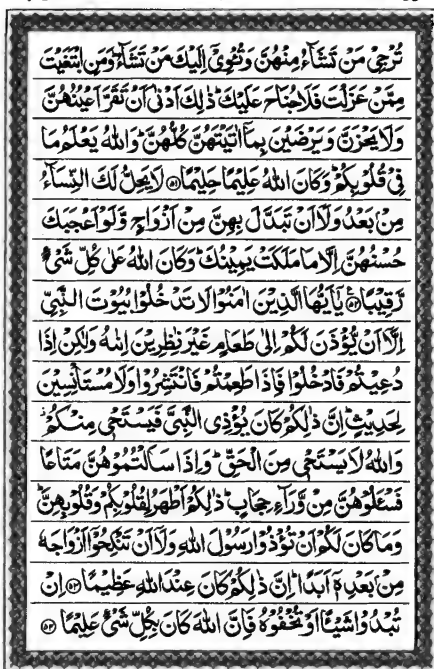 تُرْجِیْ مَنْ تَشَآءُ مِنْهُنَّ وَ تُـْٔوِیْۤ اِلَیْكَ مَنْ تَشَآءُ ؕ وَ مَنِ ابْتَغَیْتَ
مِمَّنْ عَزَلْتَ فَلَا جُنَاحَ عَلَیْكَ ؕ ذٰلِكَ اَدْنٰۤی اَنْ تَقَرَّ اَعْیُنُهُنَّ
وَ لَا یَحْزَنَّ وَ یَرْضَیْنَ بِمَاۤ اٰتَیْتَهُنَّ كُلُّهُنَّ ؕ وَ اللّٰهُ یَعْلَمُ مَا
فِیْ قُلُوْبِكُمْ ؕ وَ كَانَ اللّٰهُ عَلِیْمًا حَلِیْمًا ۝۵۱ لَا یَحِلُّ لَكَ النِّسَآءُ
مِنْۢ بَعْدُ وَ لَاۤ اَنْ تَبَدَّلَ بِهِنَّ مِنْ اَزْوَاجٍ وَّ لَوْ اَعْجَبَكَ
حُسْنُهُنَّ اِلَّا مَا مَلَكَتْ یَمِیْنُكَ ؕ وَ كَانَ اللّٰهُ عَلٰی كُلِّ شَیْءٍ
رَّقِیْبًا ۝۵۲ یٰۤاَیُّهَا الَّذِیْنَ اٰمَنُوْا لَا تَدْخُلُوْا بُیُوْتَ النَّبِیِّ
اِلَّاۤ اَنْ یُّؤْذَنَ لَكُمْ اِلٰی طَعَامٍ غَیْرَ نٰظِرِیْنَ اِنٰىهُ وَ لٰكِنْ اِذَا
دُعِیْتُمْ فَادْخُلُوْا فَاِذَا طَعِمْتُمْ فَانْتَشِرُوْا وَ لَا مُسْتَاْنِسِیْنَ
لِحَدِیْثٍ ؕ اِنَّ ذٰلِكُمْ كَانَ یُؤْذِی النَّبِیَّ فَیَسْتَحْیٖ مِنْكُمْ ؗ
وَ اللّٰهُ لَا یَسْتَحْیٖ مِنَ الْحَقِّ ؕ وَ اِذَا سَاَلْتُمُوْهُنَّ مَتَاعًا
فَسْـَٔلُوْهُنَّ مِنْ وَّرَآءِ حِجَابٍ ؕ ذٰلِكُمْ اَطْهَرُ لِقُلُوْبِكُمْ وَ قُلُوْبِهِنَّ ؕ
وَ مَا كَانَ لَكُمْ اَنْ تُؤْذُوْا رَسُوْلَ اللّٰهِ وَ لَاۤ اَنْ تَنْكِحُوْۤا اَزْوَاجَهٗ
مِنْۢ بَعْدِهٖۤ اَبَدًا ؕ اِنَّ ذٰلِكُمْ كَانَ عِنْدَ اللّٰهِ عَظِیْمًا ۝۵۳ اِنْ
تُبْدُوْا شَیْـًٔا اَوْ تُخْفُوْهُ فَاِنَّ اللّٰهَ كَانَ بِكُلِّ شَیْءٍ عَلِیْمًا ۝۵۴